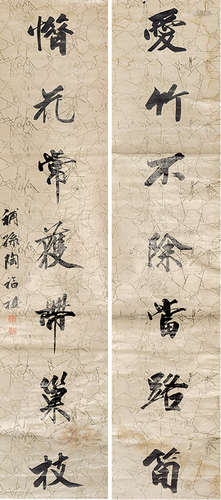 愛竹不除當路筍
惜花常護帶巢枝
補孫陶福